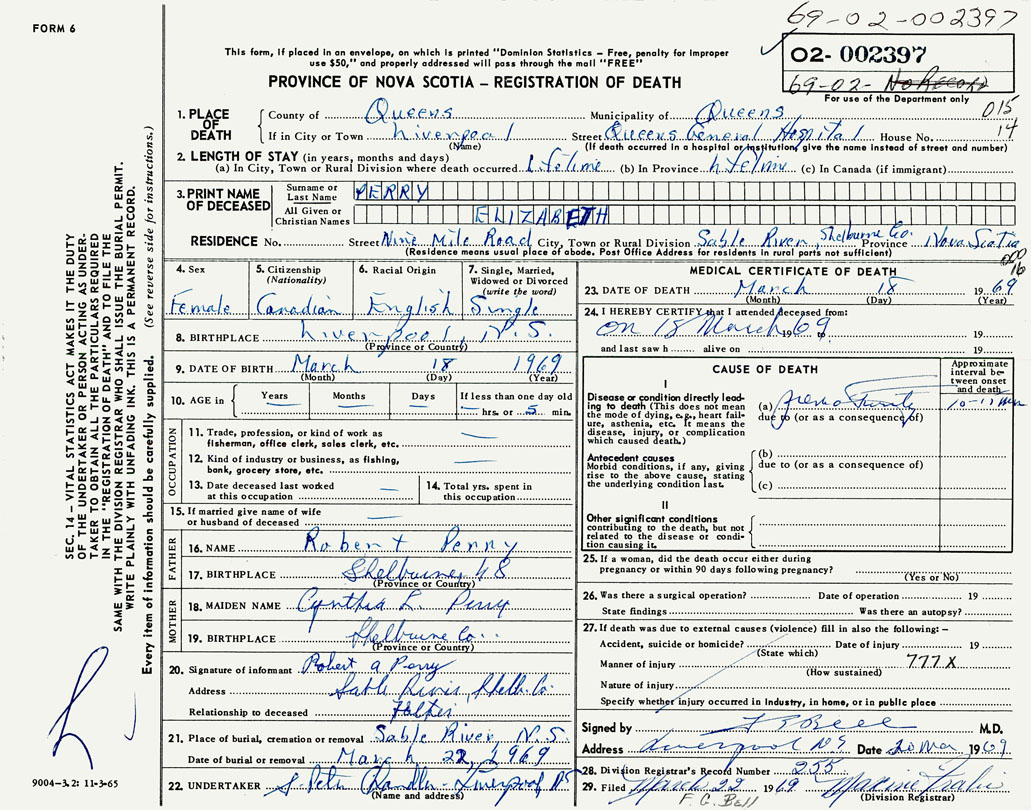 FORM 6
69-02-002397
This form, if placed in an envelope, on which is printed "Dominion Statistics – Free, penalty for improper
use $50," and properly addressed will pass through the mail "FREE"
02- 002397
69-02- No Record
For use of the Department only
PROVINCE OF NOVA SCOTIA – REGISTRATION OF DEATH
015
14
1. PLACE OF DEATH
County of Queens Municipality of Queens
If in City or Town Liverpool Street Queens General Hospital House No.
(Name) (If death occurred in a hospital or institution, give the name instead of street and number)
2. LENGTH OF STAY (in years, months and days)
(a) In City, Town or Rural Division where death occurred (b) In Province (c) In Canada (if immigrant)
3. PRINT NAME OF DECEASED
Surname or Last Name PERRY
All Given or Christian Names ELIZABETH
RESIDENCE No. Street Nine Mile Road City, Town or Rural Division Sable River, Shelburne Co. Province Nova Scotia
(Residence means usual place of abode. Post Office Address for residents in rural parts not sufficient)
000
16
4. Sex Female
5. Citizenship (Nationality) Canadian
6. Racial Origin English
7. Single, Married, Widowed or Divorced (write the word) Single
8. BIRTHPLACE Liverpool, N.S.
(Province or Country)
9. DATE OF BIRTH March 18 1969
(Month) (Day) (Year)
10. AGE in Years — Months — Days — If less than one day old — hrs. or 5 min.
OCCUPATION
11. Trade, profession, or kind of work as fisherman, office clerk, sales clerk, etc. —
12. Kind of industry or business, as fishing, bank, grocery store, etc. —
13. Date deceased last worked at this occupation —
14. Total yrs. spent in this occupation
15. If married give name of wife or husband of deceased —
FATHER
16. NAME Robert Perry
17. BIRTHPLACE Shelburne, NS
(Province or Country)
MOTHER
18. MAIDEN NAME Cynthia L. Perry
19. BIRTHPLACE Shelburne Co.
(Province or Country)
20. Signature of informant Robert A Perry
Address Sable River, Shelb. Co.
Relationship to deceased Father
21. Place of burial, cremation or removal Sable River N.S.
Date of burial or removal March 22, 1969
22. UNDERTAKER Chandler - Liverpool NS
(Name and address)
MEDICAL CERTIFICATE OF DEATH
23. DATE OF DEATH March 18 1969
(Month) (Day) (Year)
24. I HEREBY CERTIFY that I attended deceased from:
on 18 March 1969 19
and last saw h alive on 19
CAUSE OF DEATH
Approximate interval between onset and death
I
Disease or condition directly leading to death (This does not mean the mode of dying, e.g., heart failure, asthenia, etc. It means the disease, injury, or complication which caused death.)
(a) Prematurity 10-11 min
due to (or as a consequence of)
Antecedent causes
Morbid conditions, if any, giving rise to the above cause, stating the underlying condition last.
(b)
due to (or as a consequence of)
(c)
II
Other significant conditions contributing to the death, but not related to the disease or condition causing it.
25. If a woman, did the death occur either during pregnancy or within 90 days following pregnancy?
(Yes or No)
26. Was there a surgical operation? Date of operation 19
State findings Was there an autopsy?
27. If death was due to external causes (violence) fill in also the following:–
Accident, suicide or homicide? Date of injury 19
(State which)
Manner of injury 777X
(How sustained)
Nature of injury
Specify whether injury occurred in industry, in home, or in public place
Signed by M.D.
Address Liverpool NS Date 20 Mar 1969
28. Division Registrar's Record Number 255
29. Filed March 22 1969
F. G. Bell (Division Registrar)
SEC. 14 – VITAL STATISTICS ACT MAKES IT THE DUTY
OF THE UNDERTAKER OR PERSON ACTING AS UNDER-
TAKER TO OBTAIN ALL THE PARTICULARS REQUIRED
IN THE "REGISTRATION OF DEATH" AND TO FILE THE
SAME WITH THE DIVISION REGISTRAR WHO SHALL ISSUE THE BURIAL PERMIT.
WRITE PLAINLY WITH UNFADING INK. THIS IS A PERMANENT RECORD.
Every item of information should be carefully supplied. (See reverse side for instructions.)
9004-3.2: 11-3-65